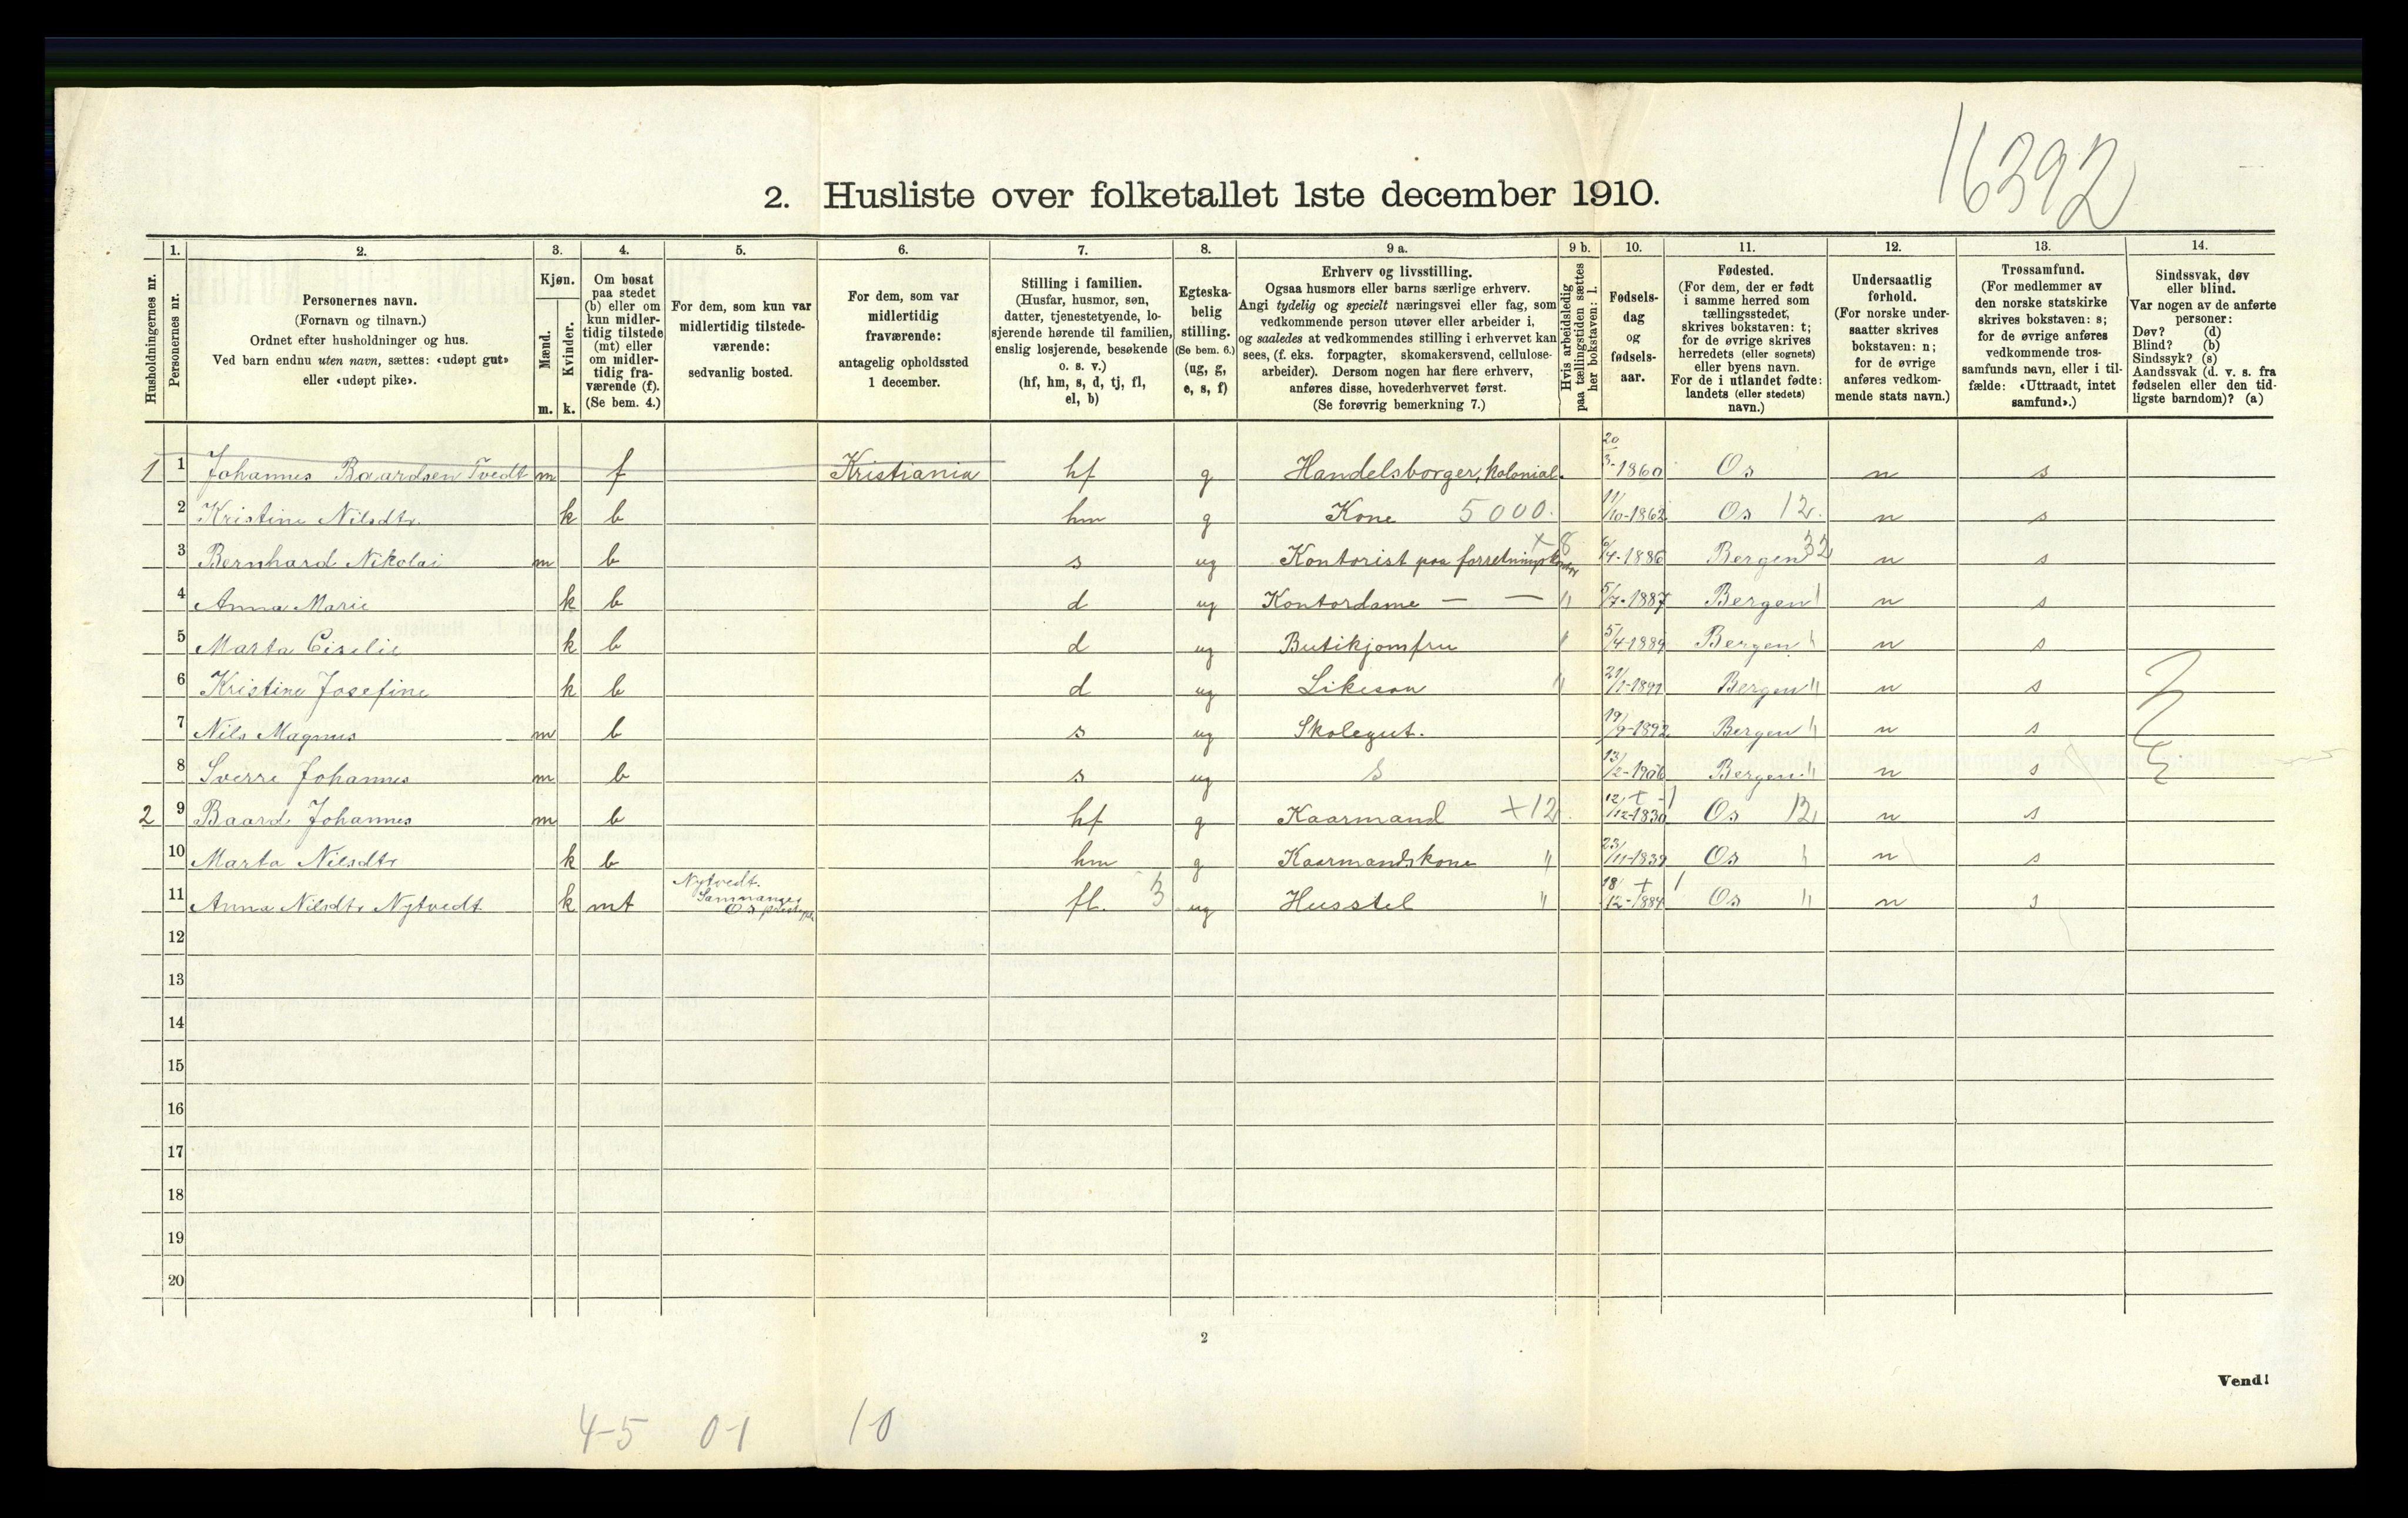 16392
2. Husliste over folketallet 1ste december 1910.
Husholdningernes nr.
1.
Personernes nr.
2.
Personernes navn.
(Fornavn og tilnavn.)
Ordnet efter husholdninger og hus.
Ved barn endnu uten navn, sættes: «udøpt gut»
eller «udøpt pike».
3.
Kjøn.
Mænd.
m.
Kvinder.
k.
4.
Om bosat
paa stedet
(b) eller om
kun midler-
tidig tilstede
(mt) eller
om midler-
tidig fra-
værende (f).
(Se bem. 4.)
5.
For dem, som kun var
midlertidig tilstede-
værende:
sedvanlig bosted.
6.
For dem, som var
midlertidig
fraværende:
antagelig opholdssted
1 december.
7.
Stilling i familien.
(Husfar, husmor, søn,
datter, tjenestetyende, lo-
sjerende hørende til familien,
enslig losjerende, besøkende
o. s. v.)
(hf, hm, s, d, tj, fl,
el, b)
8.
Egteska-
belig
stilling.
(Se bem. 6.)
(ug, g,
e, s, f)
9 a.
Erhverv og livsstilling.
Ogsaa husmors eller barns særlige erhverv.
Angi tydelig og specielt næringsvei eller fag, som
vedkommende person utøver eller arbeider i,
og saaledes at vedkommendes stilling i erhvervet kan
sees, (f. eks. forpagter, skomakersvend, cellulose-
arbeider). Dersom nogen har flere erhverv,
anføres disse, hovederhvervet først.
(Se forøvrig bemerkning 7.)
9 b.
Hvis arbeidsledig
paa tællingstiden sættes
her bokstaven: l.
10.
Fødsels-
dag
og
fødsels-
aar.
11.
Fødested.
(For dem, der er født
i samme herred som
tællingsstedet,
skrives bokstaven: t;
for de øvrige skrives
herredets (eller sognets)
eller byens navn.
For de i utlandet fødte:
landets (eller stedets)
navn.)
12.
Undersaatlig
forhold.
(For norske under-
saatter skrives
bokstaven: n;
for de øvrige
anføres vedkom-
mende stats navn.)
13.
Trossamfund.
(For medlemmer av
den norske statskirke
skrives bokstaven: s;
for de øvrige anføres
vedkommende tros-
samfunds navn, eller i til-
fælde: «Uttraadt, intet
samfund».)
14.
Sindssvak, døv
eller blind.
Var nogen av de anførte
personer:
Døv? (d)
Blind? (b)
Sindssyk? (s)
Aandssvak (d. v. s. fra
fødselen eller den tid-
ligste barndom)? (a)
1 1 Johannes Baardsen Tvedt m f Kristiania hf g Handelsborger, kolonial. 20/3-1860 Os n s
2 Kristine Nilsdtr. k b hm g Kone 5000. 11/10-1862 Os 12. n s
3 Bernhard Nikolai m b s ug Kontorist paa forretningskontor +8 6/4-1886 Bergen 32 n s
4 Anna Marie k b d ug Kontordame — — " 5/7-1887 Bergen n s
5 Marta Cicilie k b d ug Butikjomfru " 5/4-1889 Bergen " n s
6 Kristine Josefine k b d ug Likesaa " 21/1-1891 Bergen " n s
7 Nils Magnus m b s ug Skolegut. 19/9-1892 Bergen " n s
8 Sverre Johannes m b s ug S 13/2-1906 Bergen " n s
2 9 Baard Johannes m b hf g Kaarmand +12 12/12-1830 + 1 Os 12 n s
10 Marta Nilsdtr k b hm g Kaarmandskone " 23/11-1839 Os " n s
11 Anna Nilsdtr Nytvedt k mt Nytvedt. Samnanger Os fl. 3 ug Husstel " 18/12-1884 + 1 Os " n s
12
13
14
15
16
17
18
19
20
2
Vend!
4-5 0-1 1-0